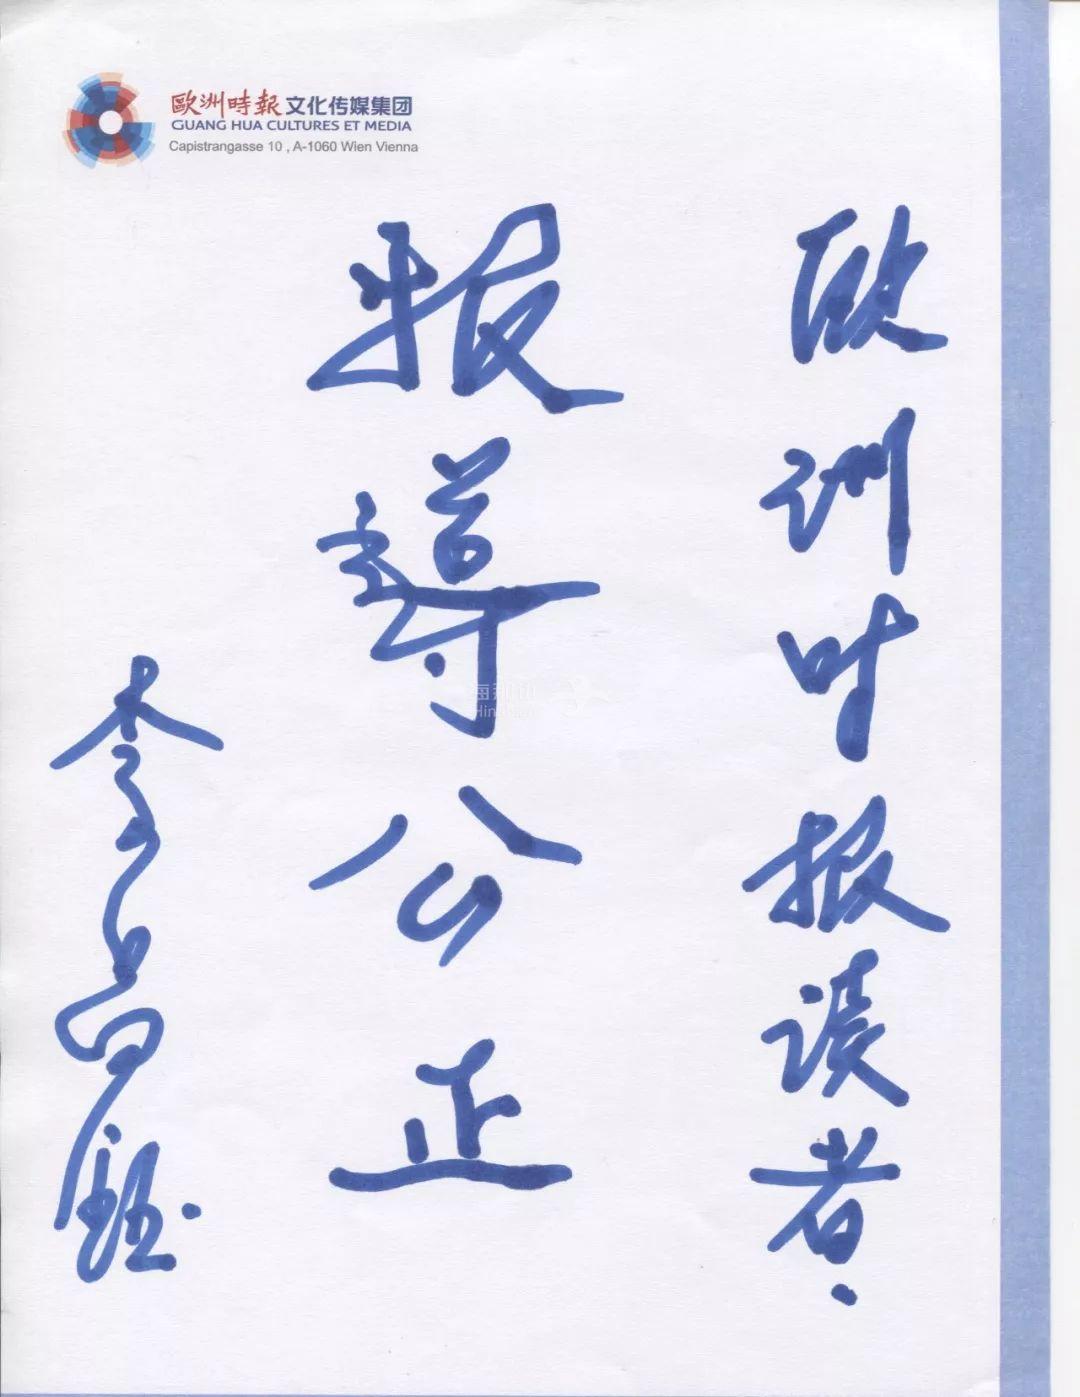 歐洲時報文化传媒集团
GUANG HUA CULTURES ET MEDIA
Capistrangasse 10 , A-1060 Wien Vienna
欧洲时报读者.
报導公正
李昌鈺